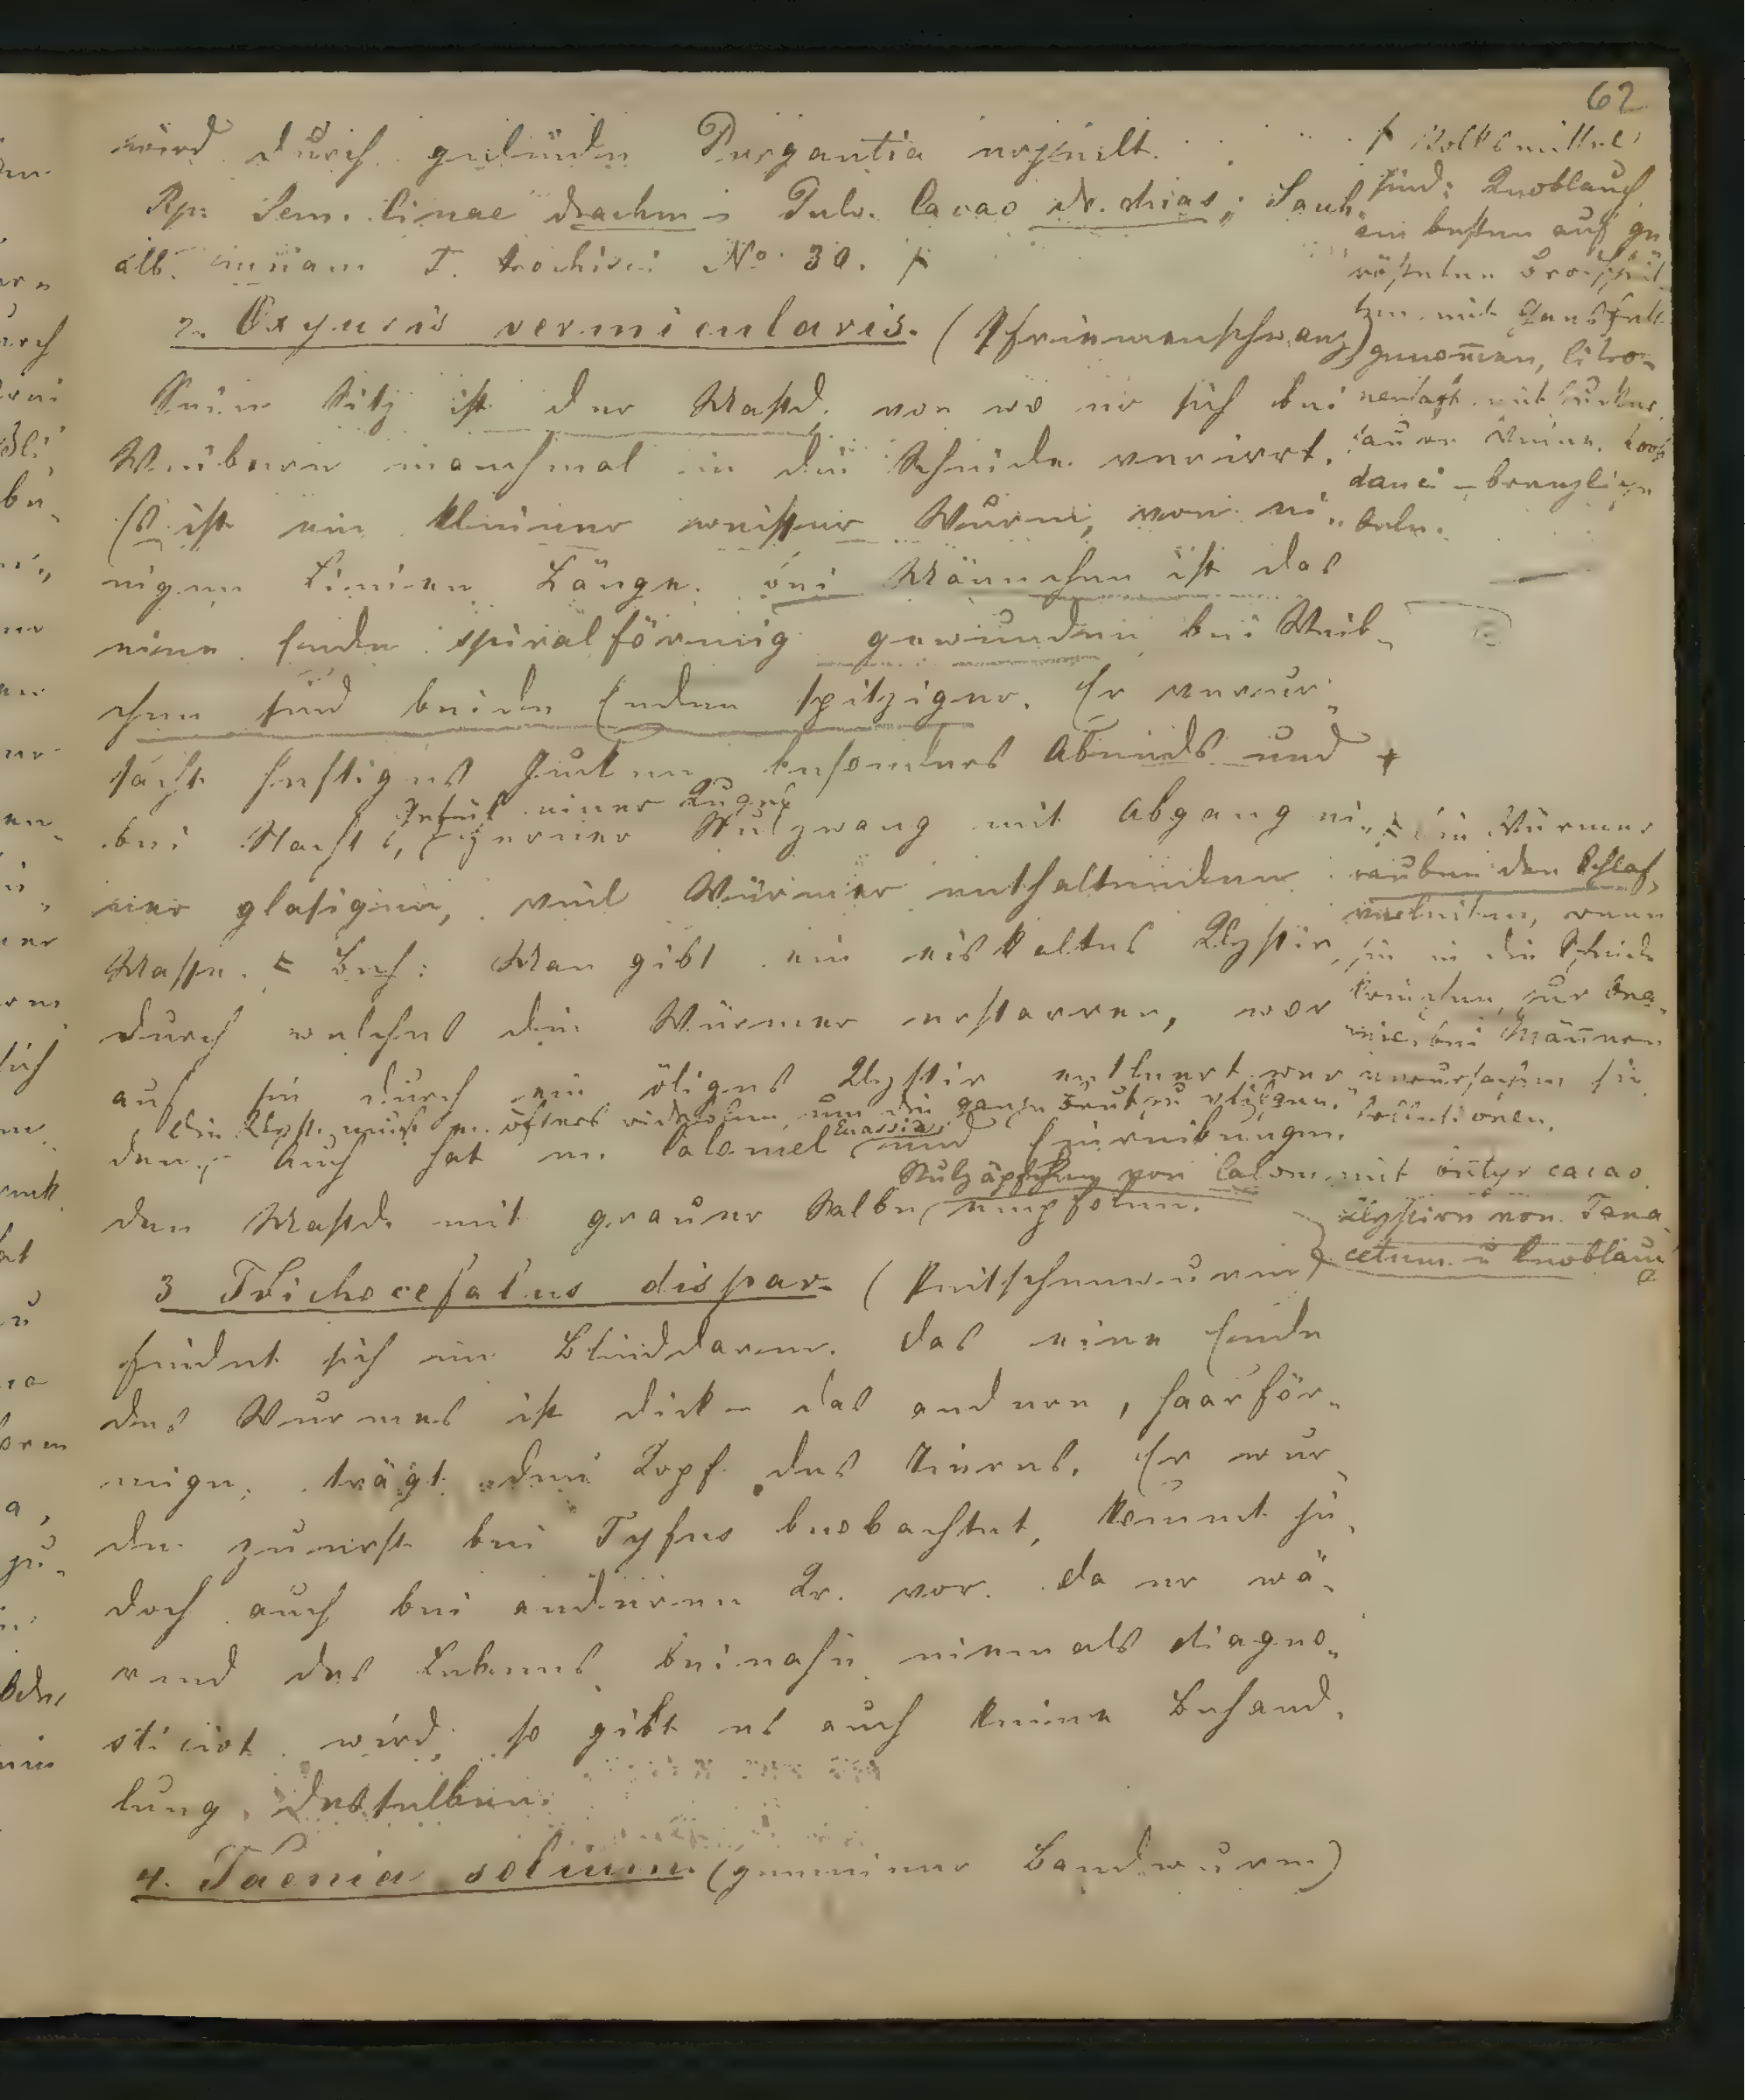 62
wird durch gelinde Purgantia erzielt.
Rp: Sem. Cinae drachm Pulv. Cacao dr. duas, Sach.
alb. unciam F. trochisci No. 30. ⨍
⨍ Volksmittel
sind: Knoblauch
am besten auf ge
rösteten Brotschnit
ten mit Gansfett
genommen, Citro-
nensaft mit Zucker
sauere Weine.
brenzliche
Oele.
2. Oxyuris vermicularis. (Pfriemenschwanz)
Sein Sitz ist der Mastd. von wo er sich bei
Weibern manchmal in die Scheide verirrt.
Es ist ein kleiner weisser Wurm, von ei-
nigen Linien Länge. bei Männchen ist das
eine Ende spiralförmig gewunden bei Weib-
chen sind beide Enden spitziger. Er verur-
sacht heftiges Jucken besonders Abends und +
bei Nacht, Gefül einer Kugel ferner Stulzwang mit Abgang ei-
ner glasigen, viel Würmer enthaltenden
Masse. ± Beh: Man gibt ein eiskaltes Klystir,
durch welches die Würmer erstarren, wor
auf sie durch ein öliges Klystir entleert wer
den. Die Klyst. muss m. öfters widerholen um die ganze Brut zu tilgen.
Auch hat m. Calomel Quassia und Einreibungen
den Mastd. mit grauer Salbe, Stulzäpfchen von Calom. mit Butyr cacao empfolen.
Klystire von Tana
cetum u Knoblauch
± Die Würmer
rauben den Schlaf,
verleiten, wenn
sie in die Scheide
kriechen, zur Ona-
nie, bei Männern
verursachen sie
Pollutionen.
3 Trichocefalus dispar (Peitschenwurm)
findet sich im Blinddarm. das eine Ende
des Wurmes ist dick – das andere, haarför-
mige, trägt den Kopf des Tieres. Er wur
de zuerst bei Tyfus beobachtet, kommt je-
doch auch bei anderen Kr. vor. da er wä-
rend des Lebens beinahe niemals diagno-
sticirt wird so gibt es auch keine Behand-
lung desselben.
4. Taenia solium (gemeiner Bandwurm)